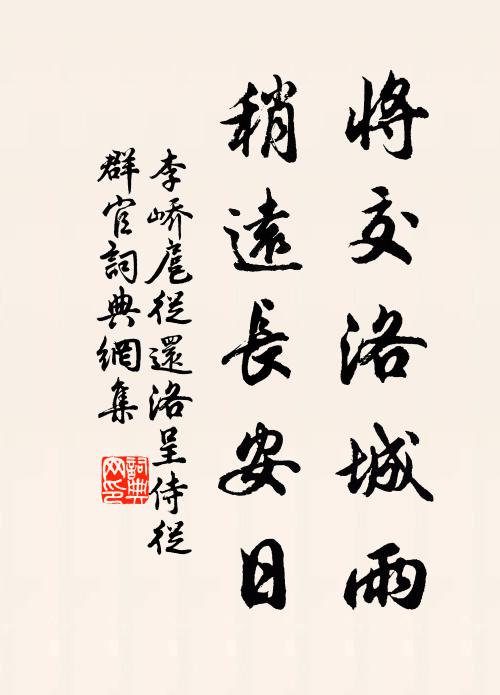 將交洛城雨
稍遠長安日
李嶠扈從還洛呈侍從
群官詞典網集
詞典
网印